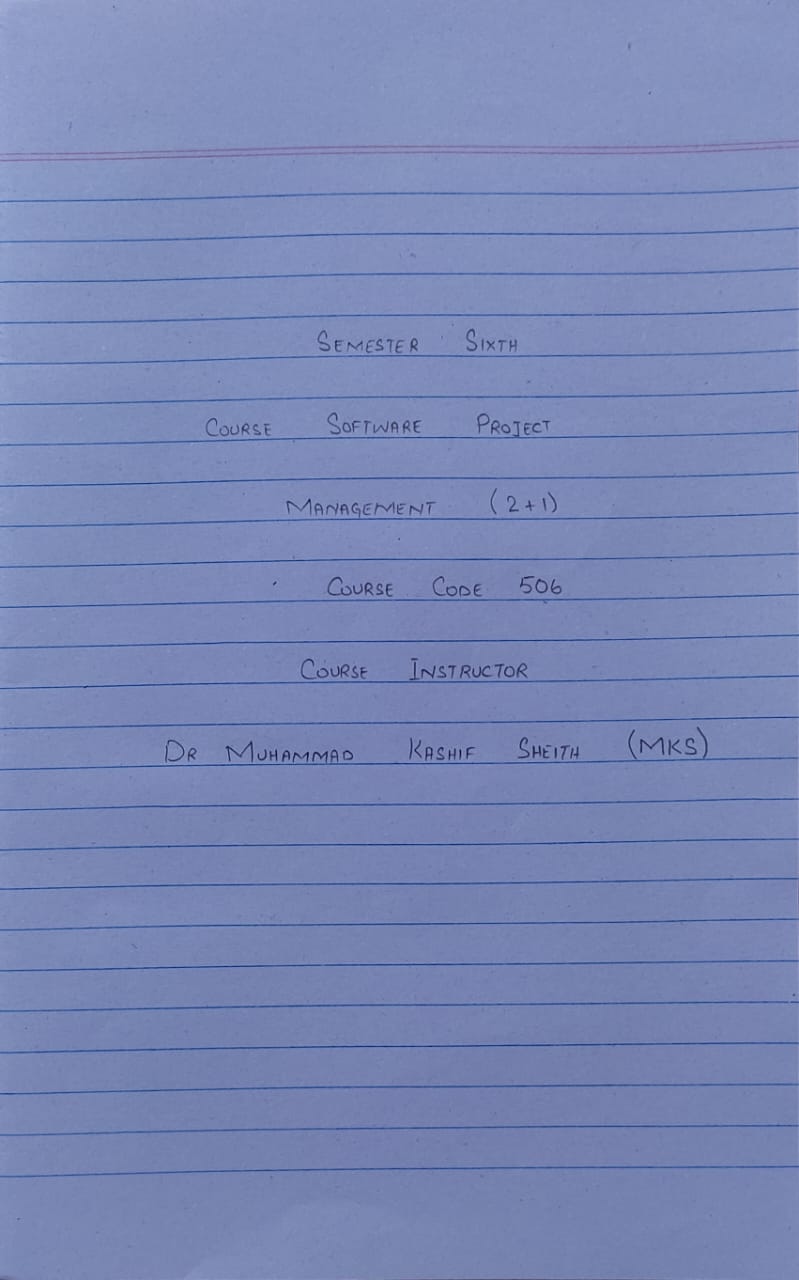 SEMESTER SIXTH
COURSE SOFTWARE PROJECT
MANAGEMENT (2+1)
COURSE CODE 506
COURSE INSTRUCTOR
DR MUHAMMAD KASHIF SHEITH (MKS)